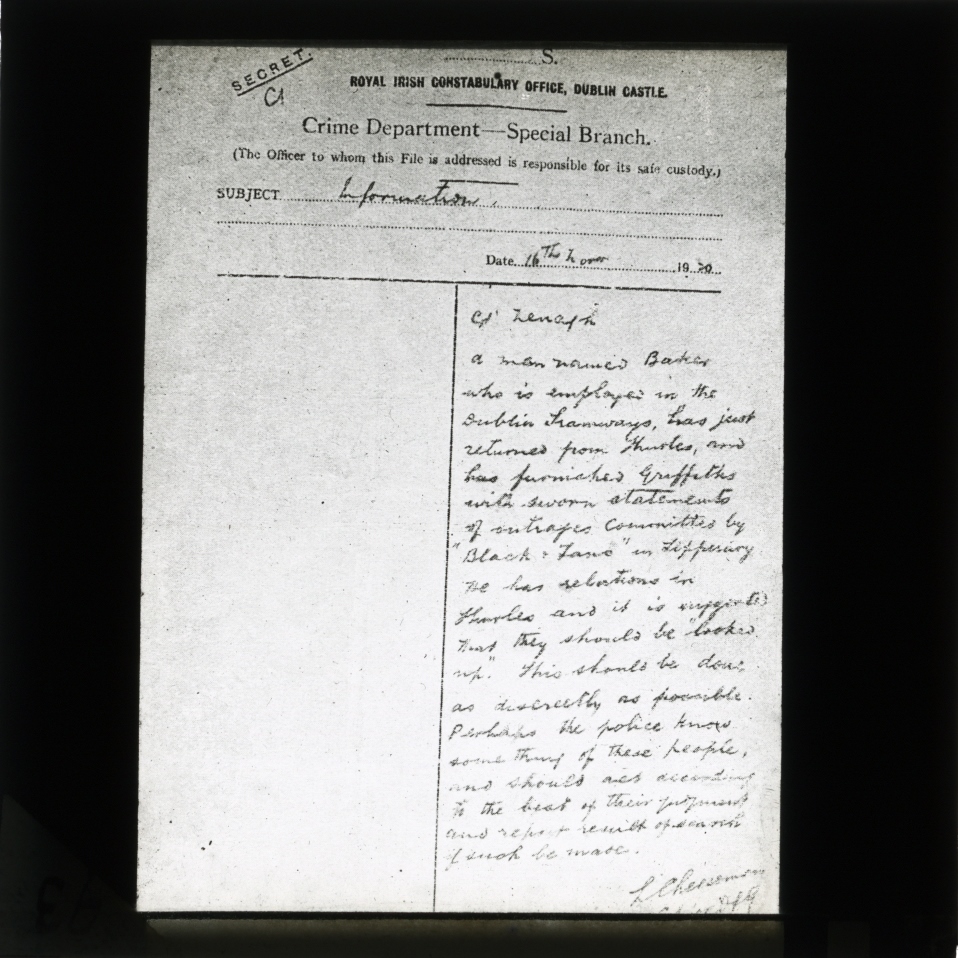 S.
SECRET.
ROYAL IRISH CONSTABULARY OFFICE, DUBLIN CASTLE.
Crime Department—Special Branch.
(The Officer to whom this File is addressed is responsible for its safe custody.)
SUBJECT Information.
Date 16th Novr 1920
a man named Baker
who is employed in the
Dublin Tramways, has just
returned from Thurles, and
has furnished Griffiths
with sworn statements
of outrages committed by
"Black & Tans" in Tipperary
He has relations in
Thurles and it is suggested
that they should be "looked
up". This should be done
as discreetly as possible.
Perhaps the police know
some thing of these people,
and should act according
to the best of their judgment
and report result of search
if such be made.